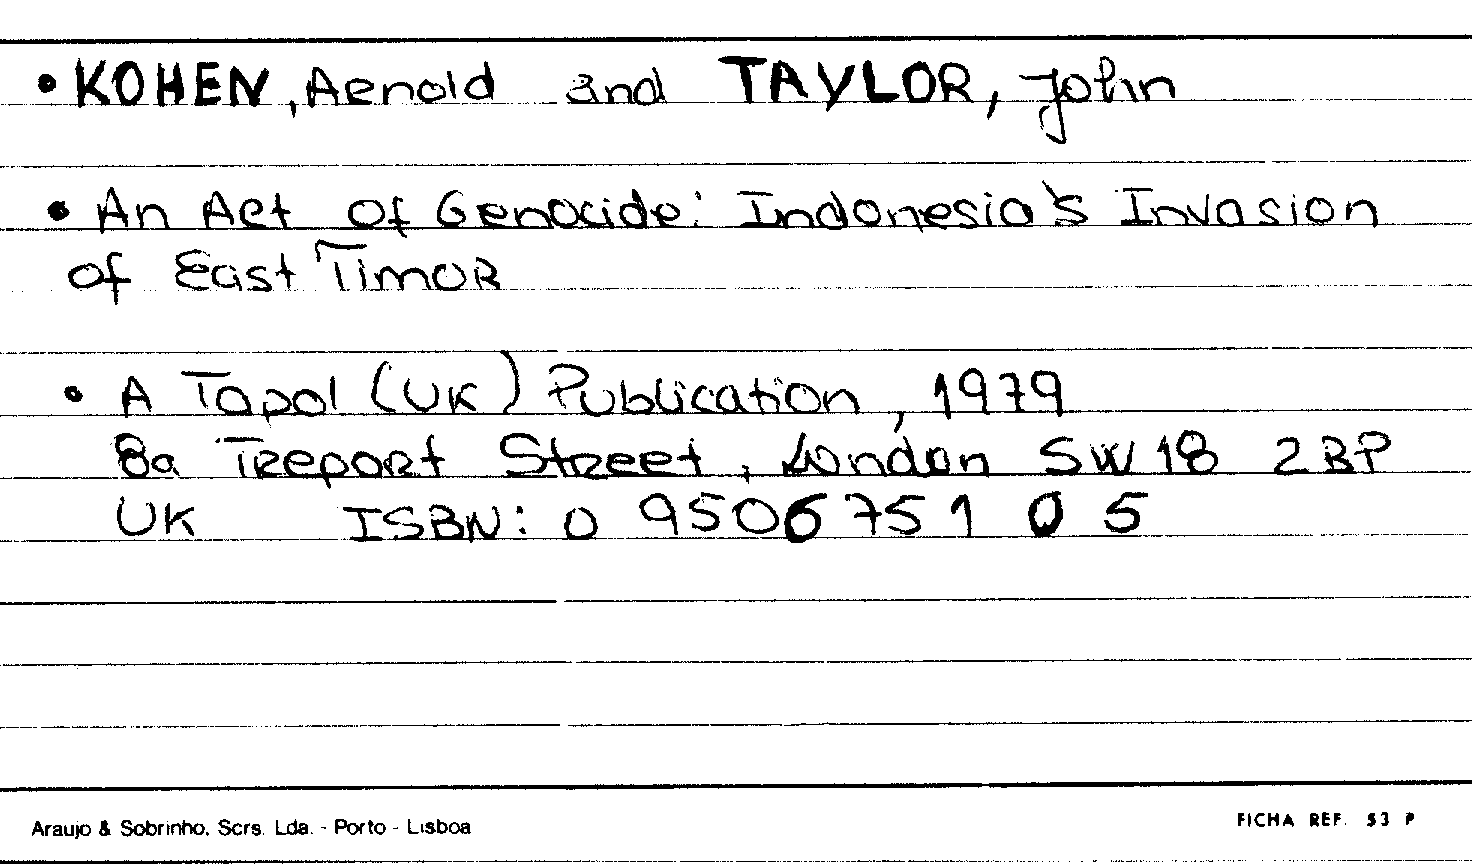 • KOHEN, Arnold and TAYLOR, John
• An Act of Genocide: Indonesia's Invasion
of East Timor
• A Tapol (UK) Publication, 1979
8a Treport Street, London SW18 2BP
UK ISBN: 0 9506751 0 5
Araujo & Sobrinho, Scrs. Lda. - Porto - Lisboa
FICHA REF. 53 P